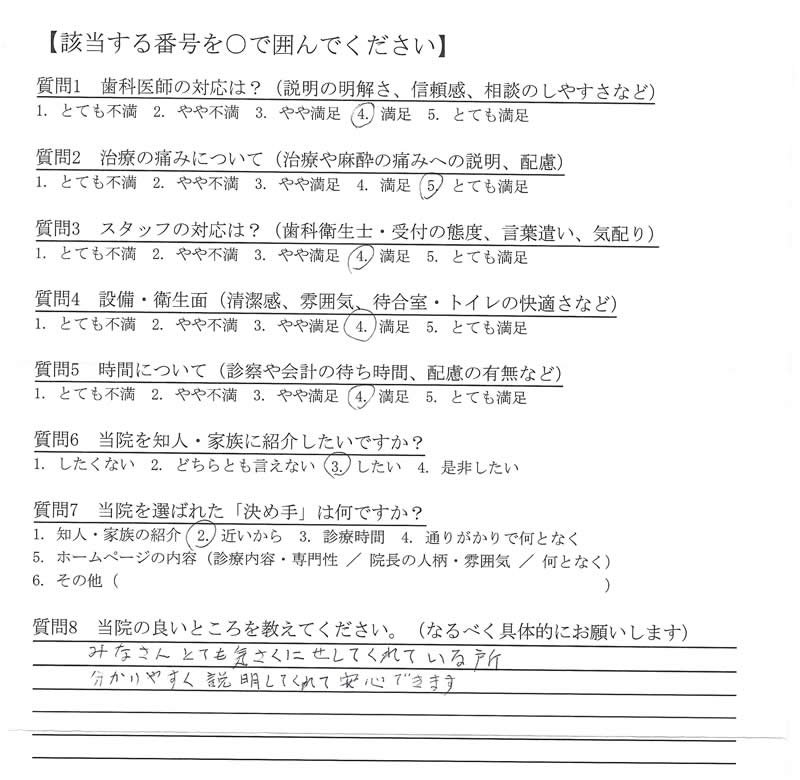 【該当する番号を○で囲んでください】
質問1 歯科医師の対応は？（説明の明解さ、信頼感、相談のしやすさなど）
1. とても不満 2. やや不満 3. やや満足 4. 満足 5. とても満足
質問2 治療の痛みについて（治療や麻酔の痛みへの説明、配慮）
1. とても不満 2. やや不満 3. やや満足 4. 満足 5. とても満足
質問3 スタッフの対応は？（歯科衛生士・受付の態度、言葉遣い、気配り）
1. とても不満 2. やや不満 3. やや満足 4. 満足 5. とても満足
質問4 設備・衛生面（清潔感、雰囲気、待合室・トイレの快適さなど）
1. とても不満 2. やや不満 3. やや満足 4. 満足 5. とても満足
質問5 時間について（診察や会計の待ち時間、配慮の有無など）
1. とても不満 2. やや不満 3. やや満足 4. 満足 5. とても満足
質問6 当院を知人・家族に紹介したいですか？
1. したくない 2. どちらとも言えない 3. したい 4. 是非したい
質問7 当院を選ばれた「決め手」は何ですか？
1. 知人・家族の紹介 2. 近いから 3. 診療時間 4. 通りがかりで何となく
5. ホームページの内容（診療内容・専門性 ／ 院長の人柄・雰囲気 ／ 何となく）
6. その他（ ）
質問8 当院の良いところを教えてください。（なるべく具体的にお願いします）
みなさん とても気さくにせしてくれている所
分かりやすく説明してくれて安心できます